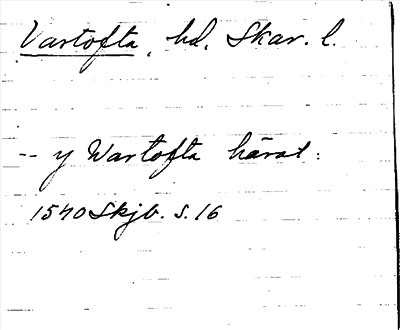 Vartofta, hd, Skar. l.
-- y Wartofta härat:
1540 Skjb. s. 16